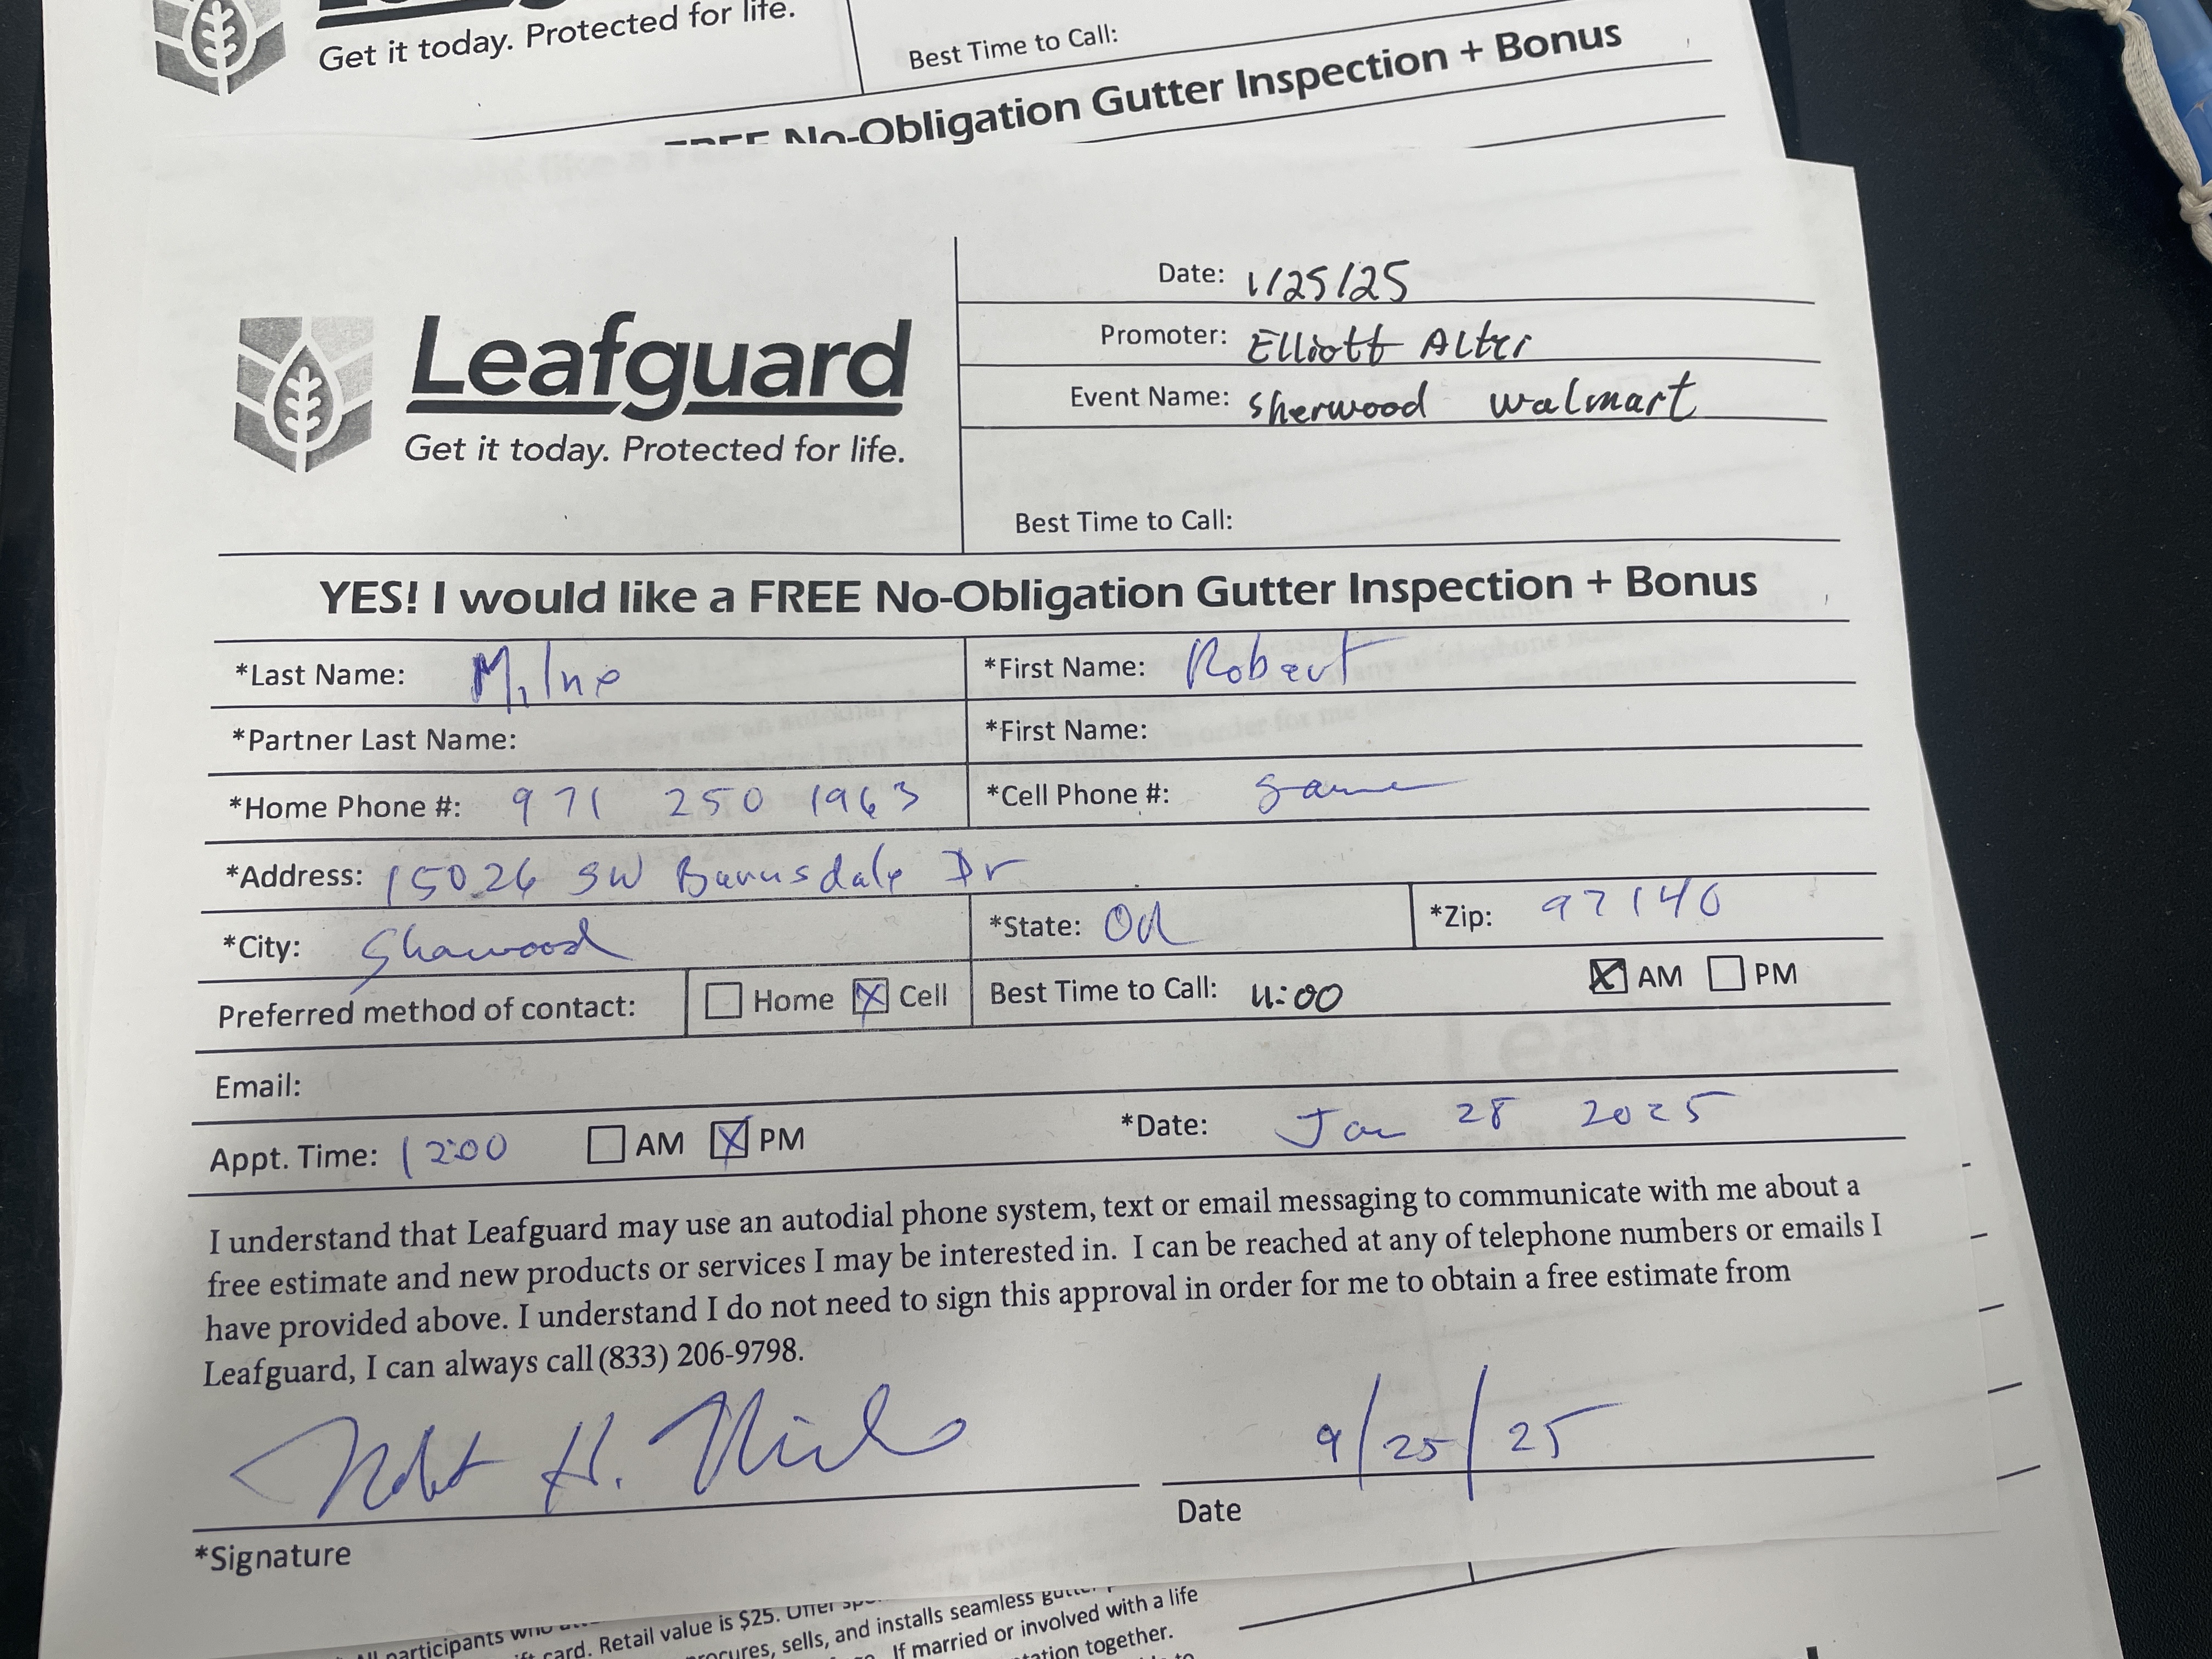 Get it today. Protected for life.
Best Time to Call:
No-Obligation Gutter Inspection + Bonus
Leafguard
Get it today. Protected for life.
Date: 1/25/25
Promoter: Elliott Altri
Event Name: Sherwood walmart
Best Time to Call:
YES! I would like a FREE No-Obligation Gutter Inspection + Bonus
*Last Name: Milne *First Name: Robert
*Partner Last Name: *First Name:
*Home Phone #: 971 250 1963 *Cell Phone #: Same
*Address: 15026 SW Dr
*City: Sherwood *State: OR *Zip: 97140
Preferred method of contact: Home Cell Best Time to Call: 11:00 AM PM
Email:
Appt. Time: 1200 AM PM *Date: Jan 28 2025
I understand that Leafguard may use an autodial phone system, text or email messaging to communicate with me about a
free estimate and new products or services I may be interested in. I can be reached at any of telephone numbers or emails I
have provided above. I understand I do not need to sign this approval in order for me to obtain a free estimate from
Leafguard, I can always call (833) 206-9798.
H. Milne 9/25/25
*Signature Date
participants
card. Retail value is $25.
procures, sells, and installs seamless
If married or involved with a life
together.